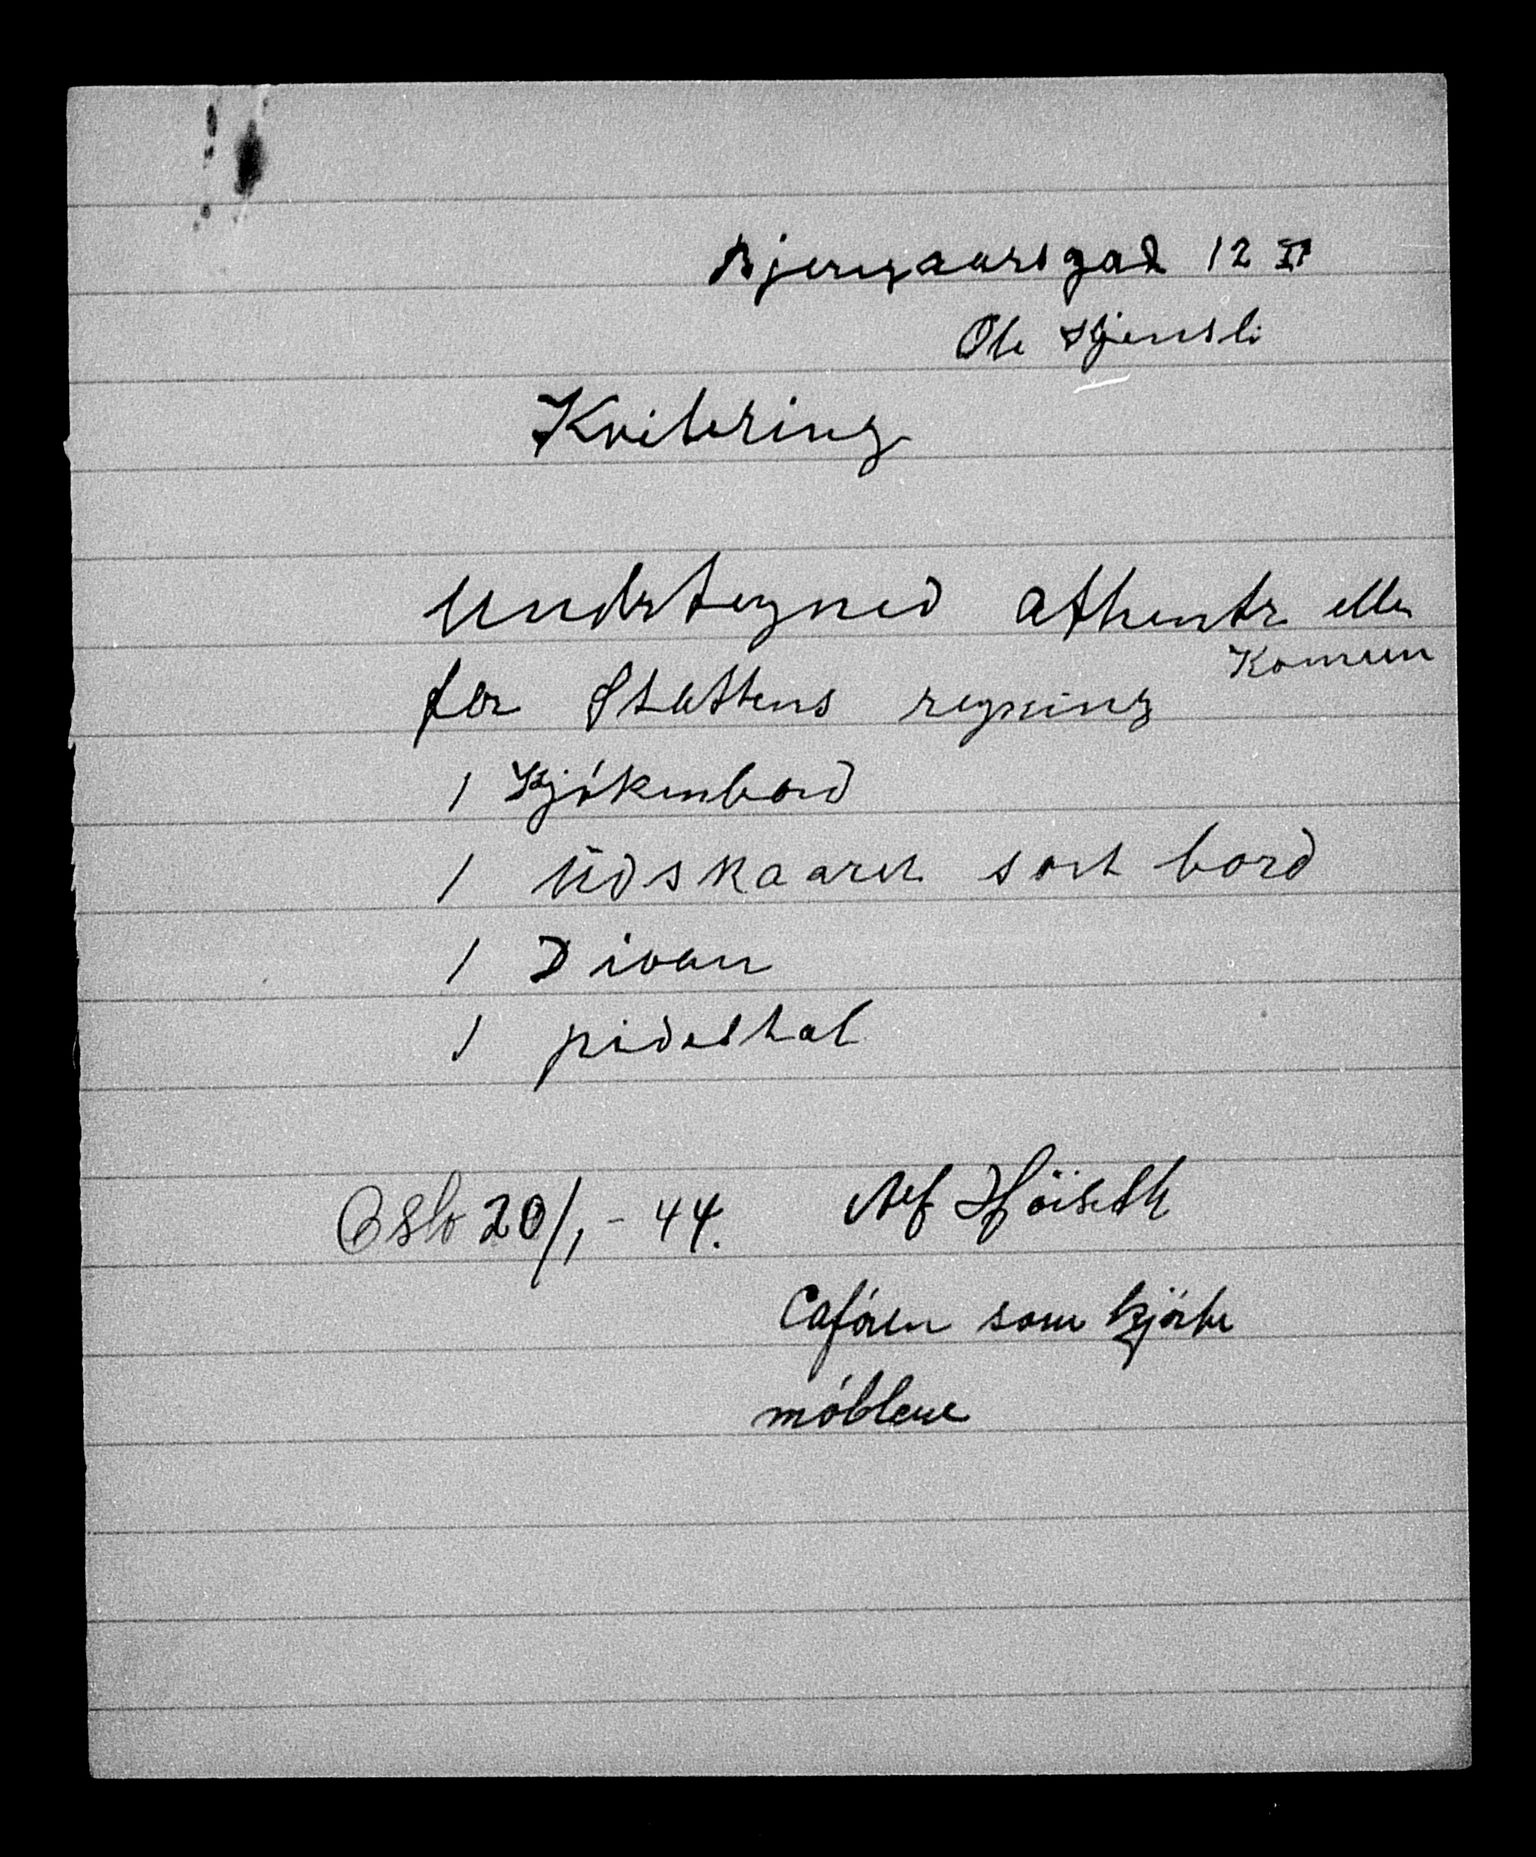 Bjeregaarsgad 12 II
Ole Stjensli
Kvitering
Undertegned afhentr eller
Komun
for Stattens regning
1 Kjökenbord
1 Udskaaret sort bord
1 Divan
1 pidestal
Oslo 20/1 - 44. Alf Höiseth
Cafören som kjörte
möblene